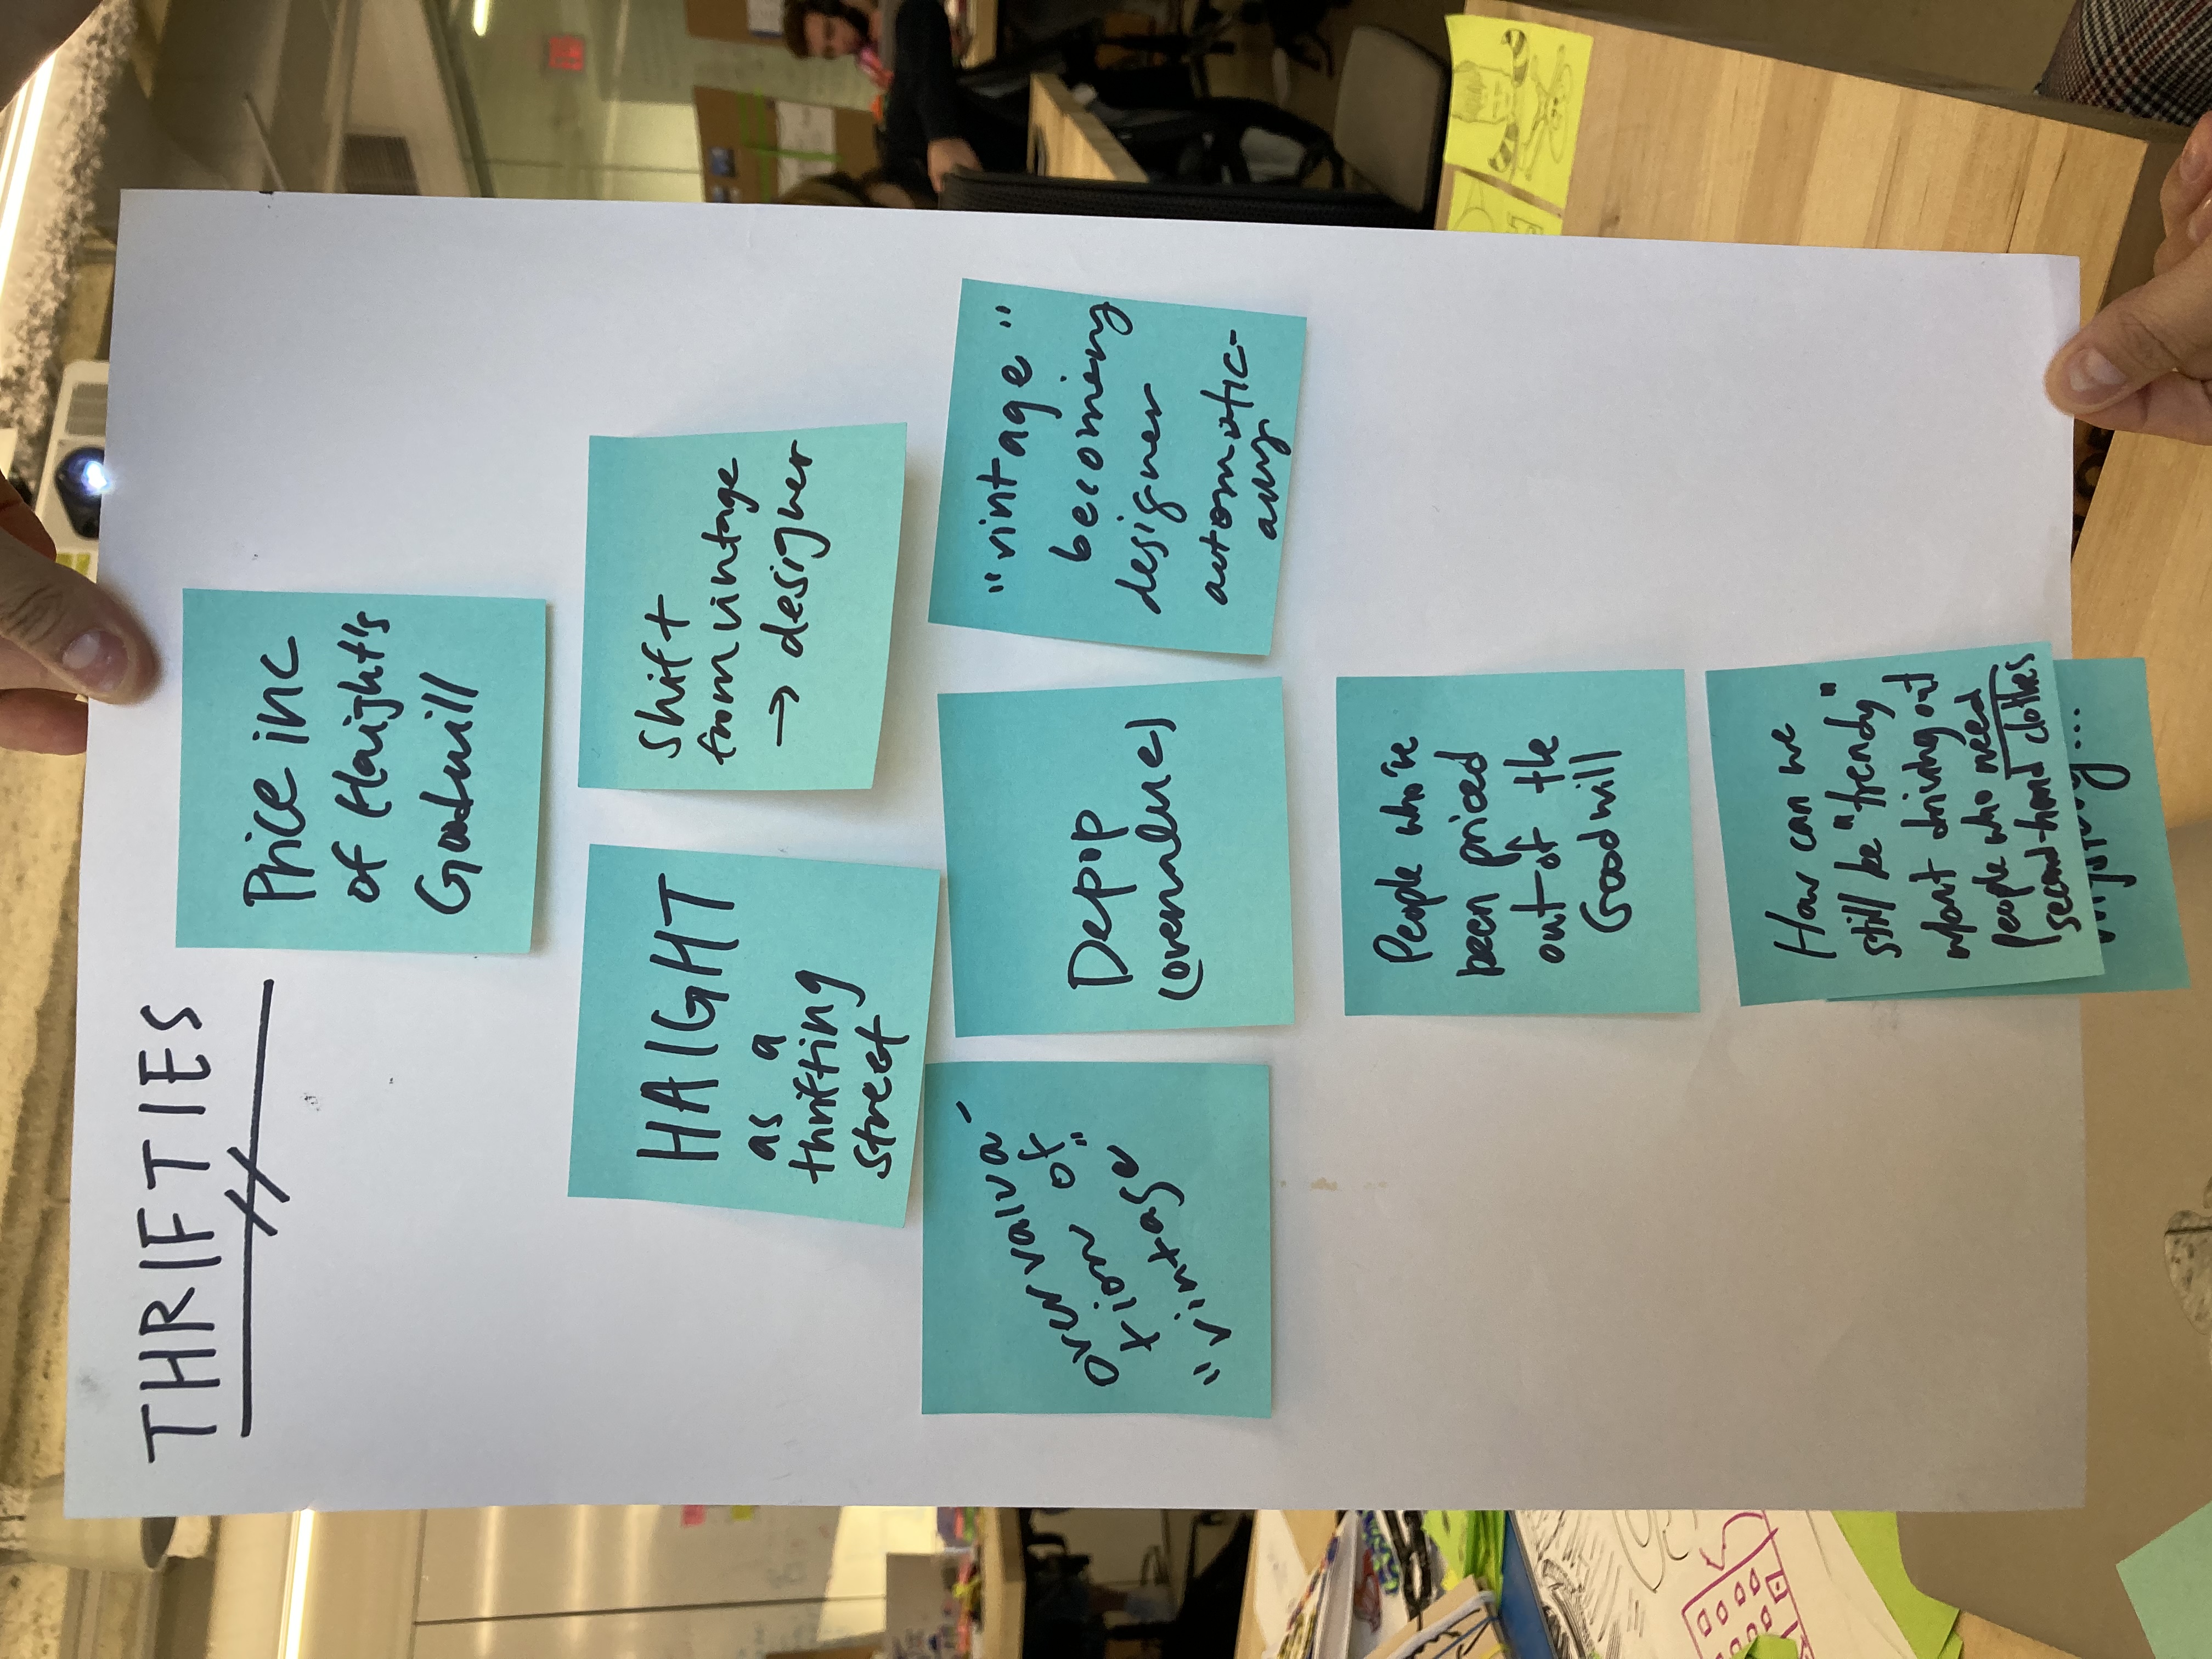 THRIFTIES
Price inc
of Haight's
Goodwill
HAIGHT
as a
thrifting
street
shift
from vintage
→ designer
overvalua-
tion of
"vintage"
Depop
(overvalue)
"vintage"
becoming
designer
automatic-
ally
People who've
been priced
out of the
Goodwill
How can we
still be "trendy"
w/out driving out
people who need
second-hand clothes
mystery...